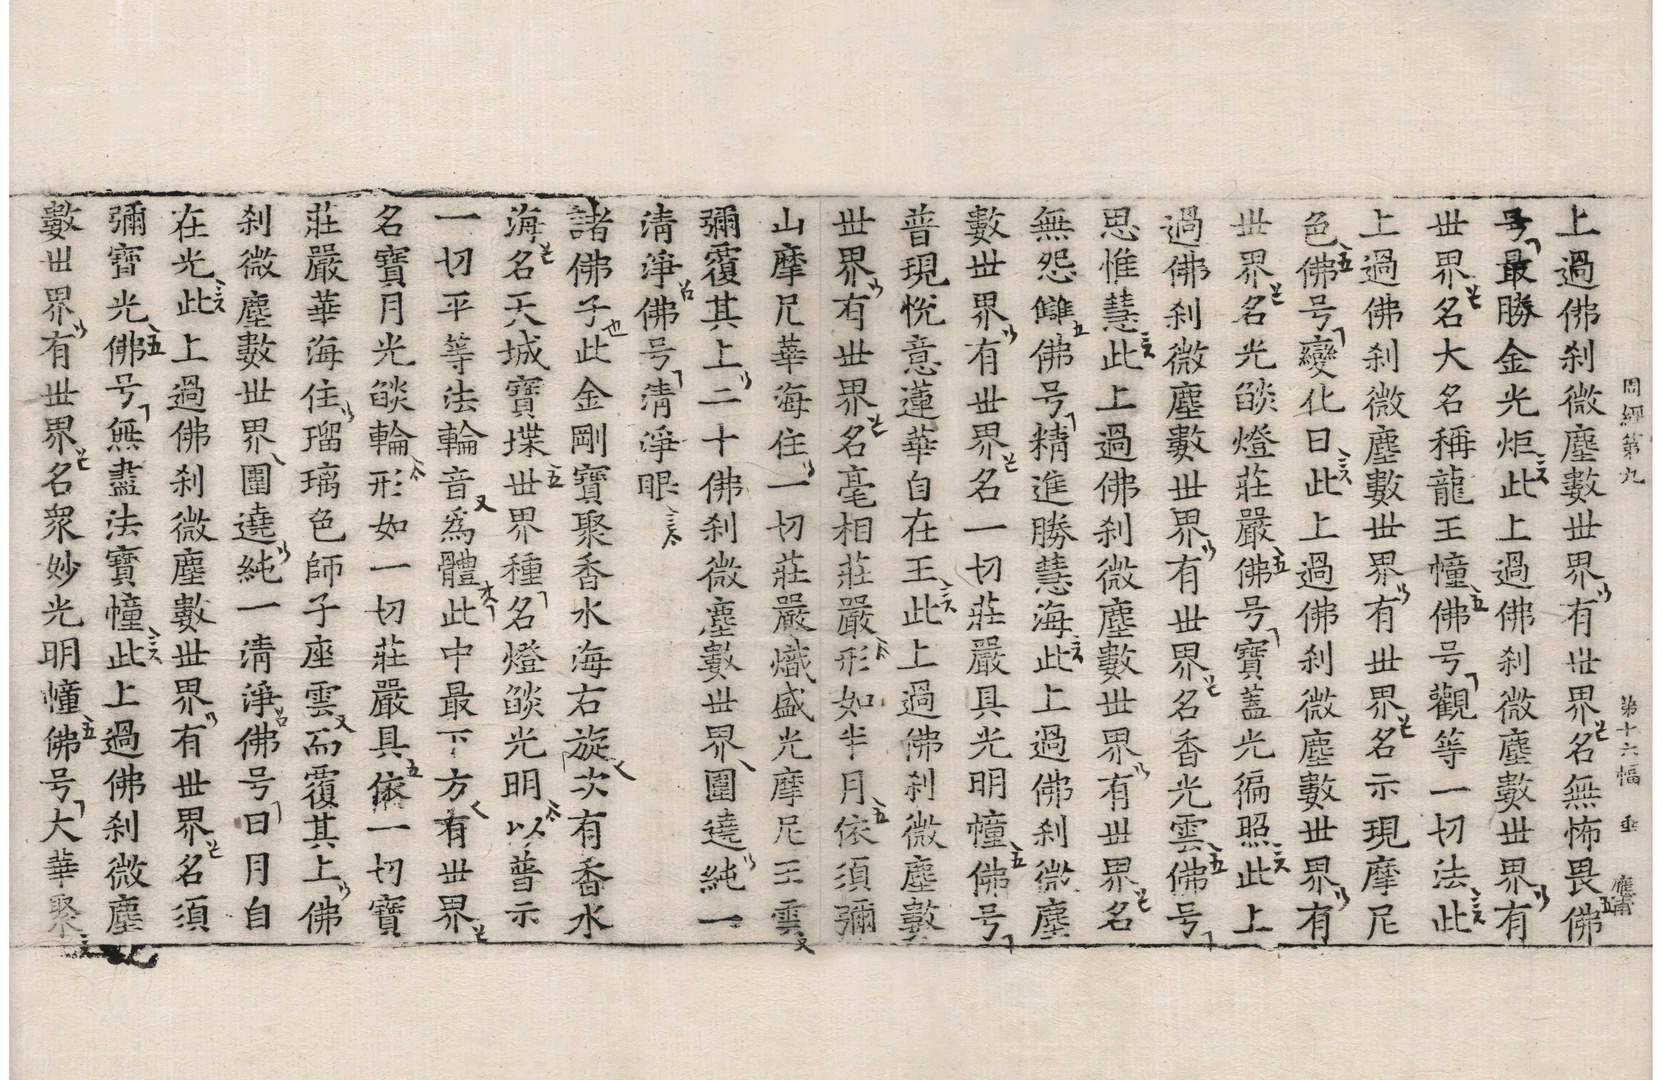 周經第九　第十六幅　垂
上過佛刹微塵數世界有世界名無怖畏佛
号最勝金光炬此上過佛刹微塵數世界有
世界名大名稱龍王幢佛号觀等一切法此
上過佛刹微塵數世界有世界名示現摩尼
色佛号變化日此上過佛刹微塵數世界有
世界名光燄燈莊嚴佛号寶蓋光徧照此上
過佛刹微塵數世界有世界名香光雲佛号
思惟慧此上過佛刹微塵數世界有世界名
無怨讎佛号精進勝慧海此上過佛刹微塵
數世界有世界名一切莊嚴具光明幢佛号
普現悅意蓮華自在王此上過佛刹微塵數
世界有世界名毫相莊嚴形如半月依須彌
山摩尼華海住一切莊嚴熾盛光摩尼王雲
彌覆其上二十佛刹微塵數世界圍遶純一
清淨佛号清淨眼
諸佛子此金剛寶聚香水海右旋次有香水
海名天城寶堞世界種名燈燄光明以普示
一切平等法輪音爲體此中最下方有世界
名寶月光燄輪形如一切莊嚴具依一切寶
莊嚴華海住瑠璃色師子座雲而覆其上佛
刹微塵數世界圍遶純一清淨佛号日月自
在光此上過佛刹微塵數世界有世界名須
彌寶光佛号無盡法寶幢此上過佛刹微塵
數世界有世界名衆妙光明幢佛号大華聚